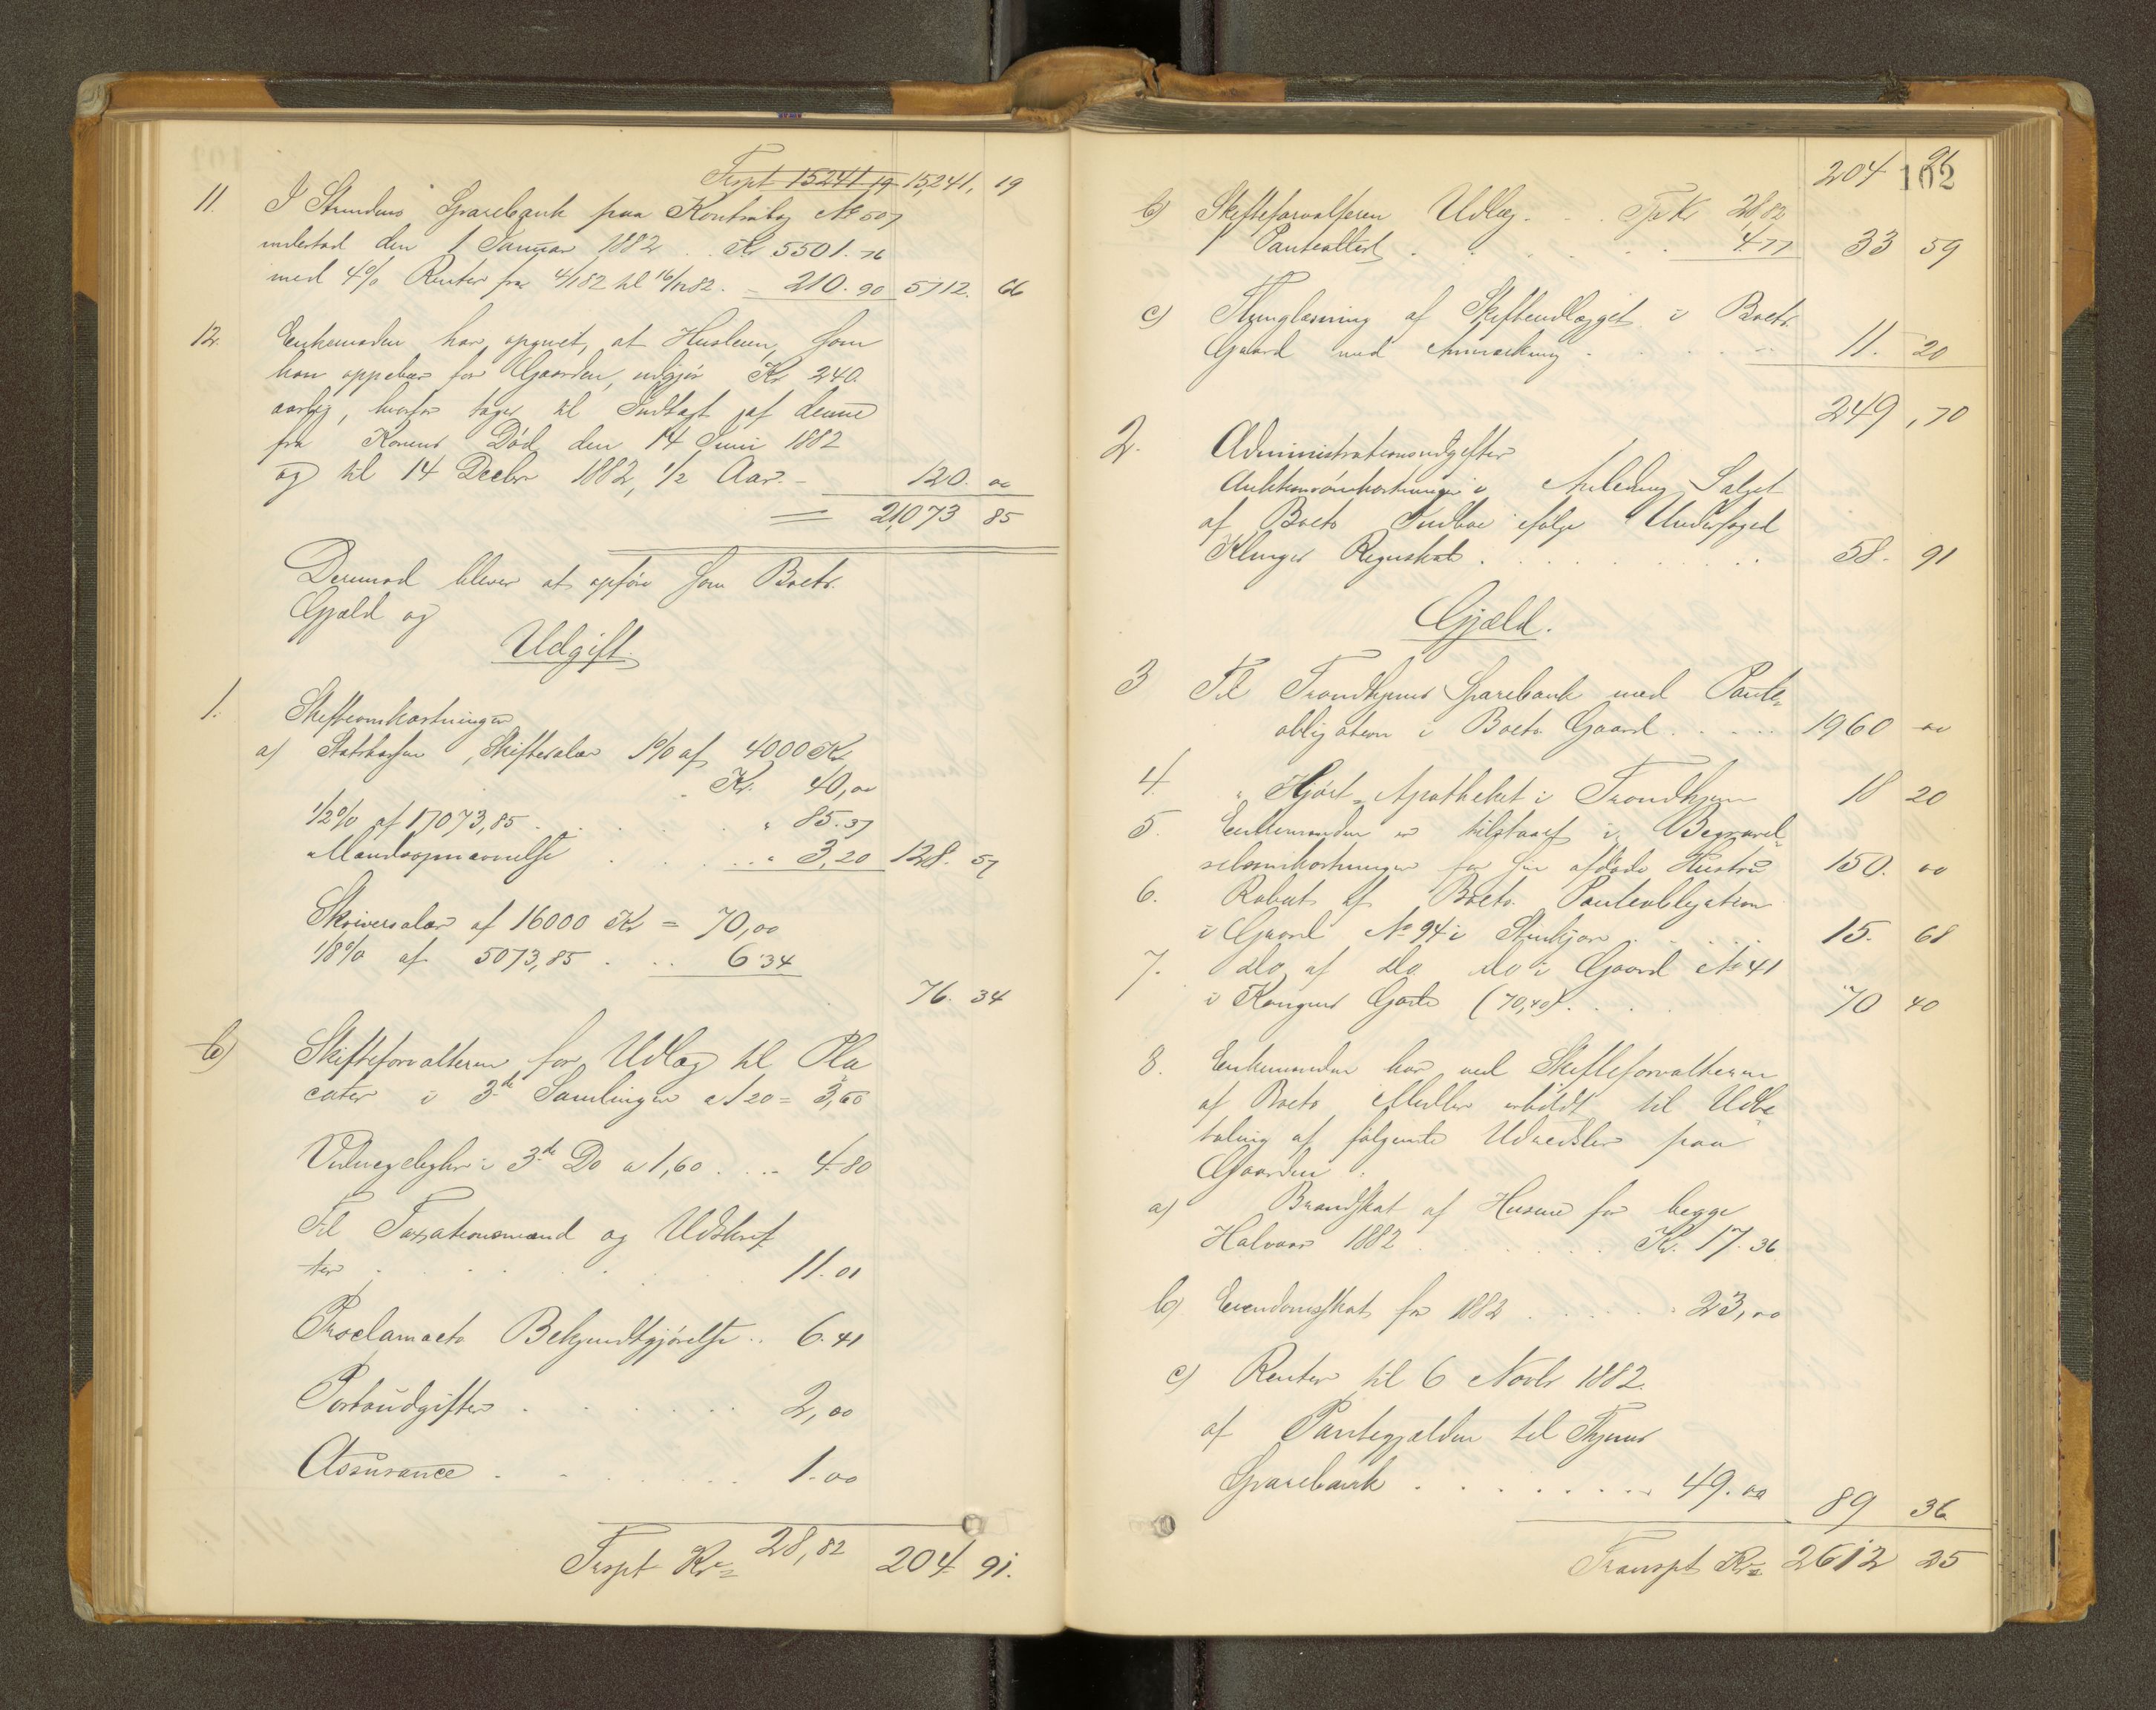 Trspt 15241,19 15,241, 19
11. I Strindens Sparebank paa Kontrabog No 507
indestod den 1 Januar 1882 . . Kr 5501.76
med 4% Renter fra 4/1 82 til 16/12 82. = 210.90 5712. 66
12. Enkemanden har opgivet, at Husleien, som
han oppebær for Gaarden, udgjør Kr 240.
aarlig, hvorfor tages til Indtægt af denne
fra Konens Død den 14 Juni 1882
og til 14 Decbr 1882, 1/2 Aar - 120. 00
= 21,073 85
Derimod bliver at opføre som Boets
Gjæld og
Udgift.
1. Skifteomkostninger
a) Statskassen, Skiftesalær 1% af 4000 Kr
Kr. 40,00
1/2% af 17073,85 . . . . . " 85.37
Mandsopnævnelse . . . . . " 3,20 128. 57
Skriversalær af 16000 Kr = 70,00
1/8% af 5073,85 . . . . 6.34
76. 34
b) Skifteforvalteren for Udlæg til Pla
cater i 3de Samlinger a 1 20 = 3,60
Vidnegebyhr i 3de Do a 1,60 . . . . 4.80
Til Taxationsmænd og Udskrif
ter . . . . . . 11.01
Proclamaets Bekjendtgjørelse . . 6.41
Portoudgifter . . . . . . 2,00
Assurance . . . . . . 1.00
Trspt Kr = 28,82 204. 91.
204 91
102
b) Skifteforvalteren Udlæg . . . Tp Kr 28,82
Panteattest . . . . . . 4.77 33 59
c) Thinglæsning af Skifteudlægget i Boets
Gaard med Anmærkning . . . . . 11. 20
249, 70
2. Administrationsudgifter
Auktionsomkostninger i Anledning Salget
af Boets Indboe ifølge Underfoged
Klinges Regnskab . . . . . . . . . 58. 91
Gjæld.
3 Til Trondhjems Sparebank med Pante
obligation i Boets Gaard . . . . . 1960 00
4. " Hjort-Apotheket i Trondhjem 18 20
5. Enkemanden er tilstaaet i Begravel
sesomkostninger for sin afdøde Hustru 150. 00
6. Rabat af Boets Panteobligation
i Gaard No 94 i Stenkjær . . . . . 15. 68
7. Do af Do Do i Gaard No 41
i Kongens Gade (70,40) . . . . 70 40
8. Enkemanden har ved Skifteforvalteren
af Boets Midler erholdt til Udbe
taling af følgende Udredsler paa
Gaarden :
a) Brandskat af Husene for begge
Halvaar 1882 . . . . . . Kr. 17.36
b) Eiendomsskat for 1882 . . . . . 23,00
c) Renter til 6 Novbr 1882.
af Pantegjælden til Thjems
Sparebank . . . . . . . . 49.00 89 36
Transpt Kr = 2612 25